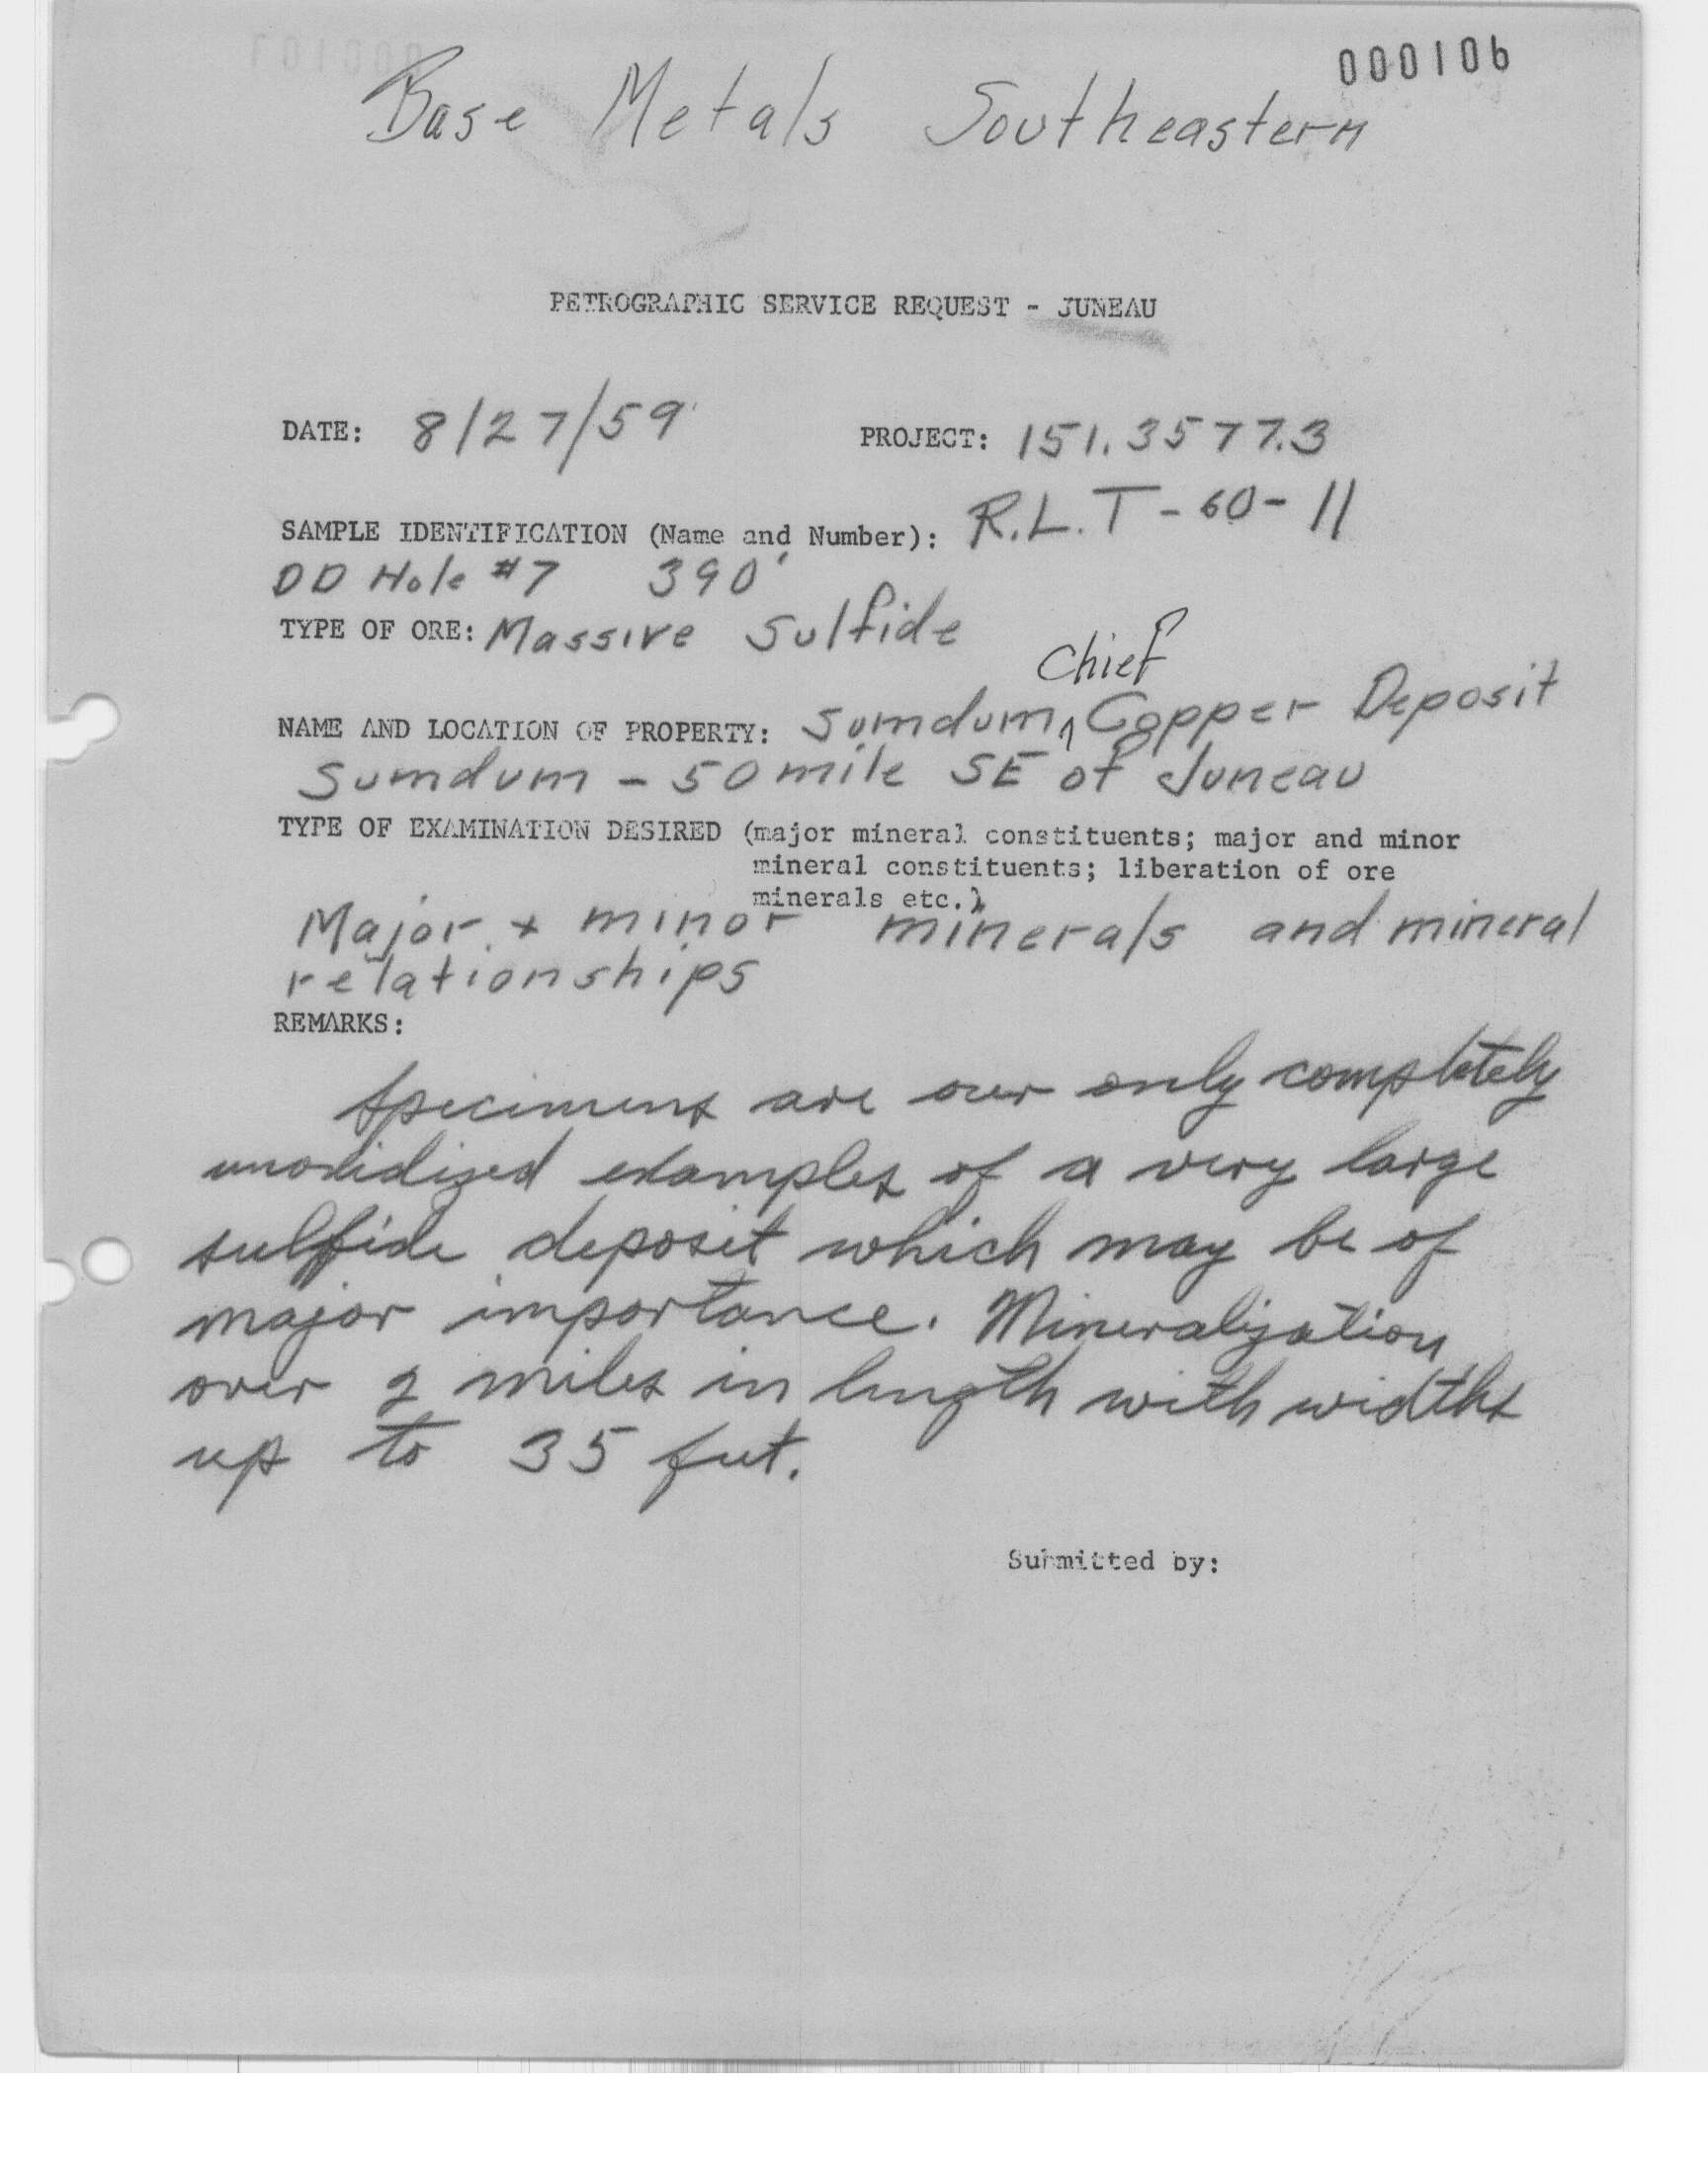 000106
Base Metals Southeastern
PETROGRAPHIC SERVICE REQUEST - JUNEAU
DATE: 8/27/59 PROJECT: 151.3577.3
SAMPLE IDENTIFICATION (Name and Number): R.L.T-60-11
DD Hole #7 390'
TYPE OF ORE: Massive Sulfide
Chief
NAME AND LOCATION OF PROPERTY: Sumdum ^ Copper Deposit
Sumdum - 50 mile SE of Juneau
TYPE OF EXAMINATION DESIRED (major mineral constituents; major and minor
mineral constituents; liberation of ore
minerals etc.)
Major + minor minerals and mineral
relationships
REMARKS:
Specimens are our only completely
unoxidized examples of a very large
sulfide deposit which may be of
major importance. Mineralization
over 2 miles in length with widths
up to 35 feet.
Submitted by: